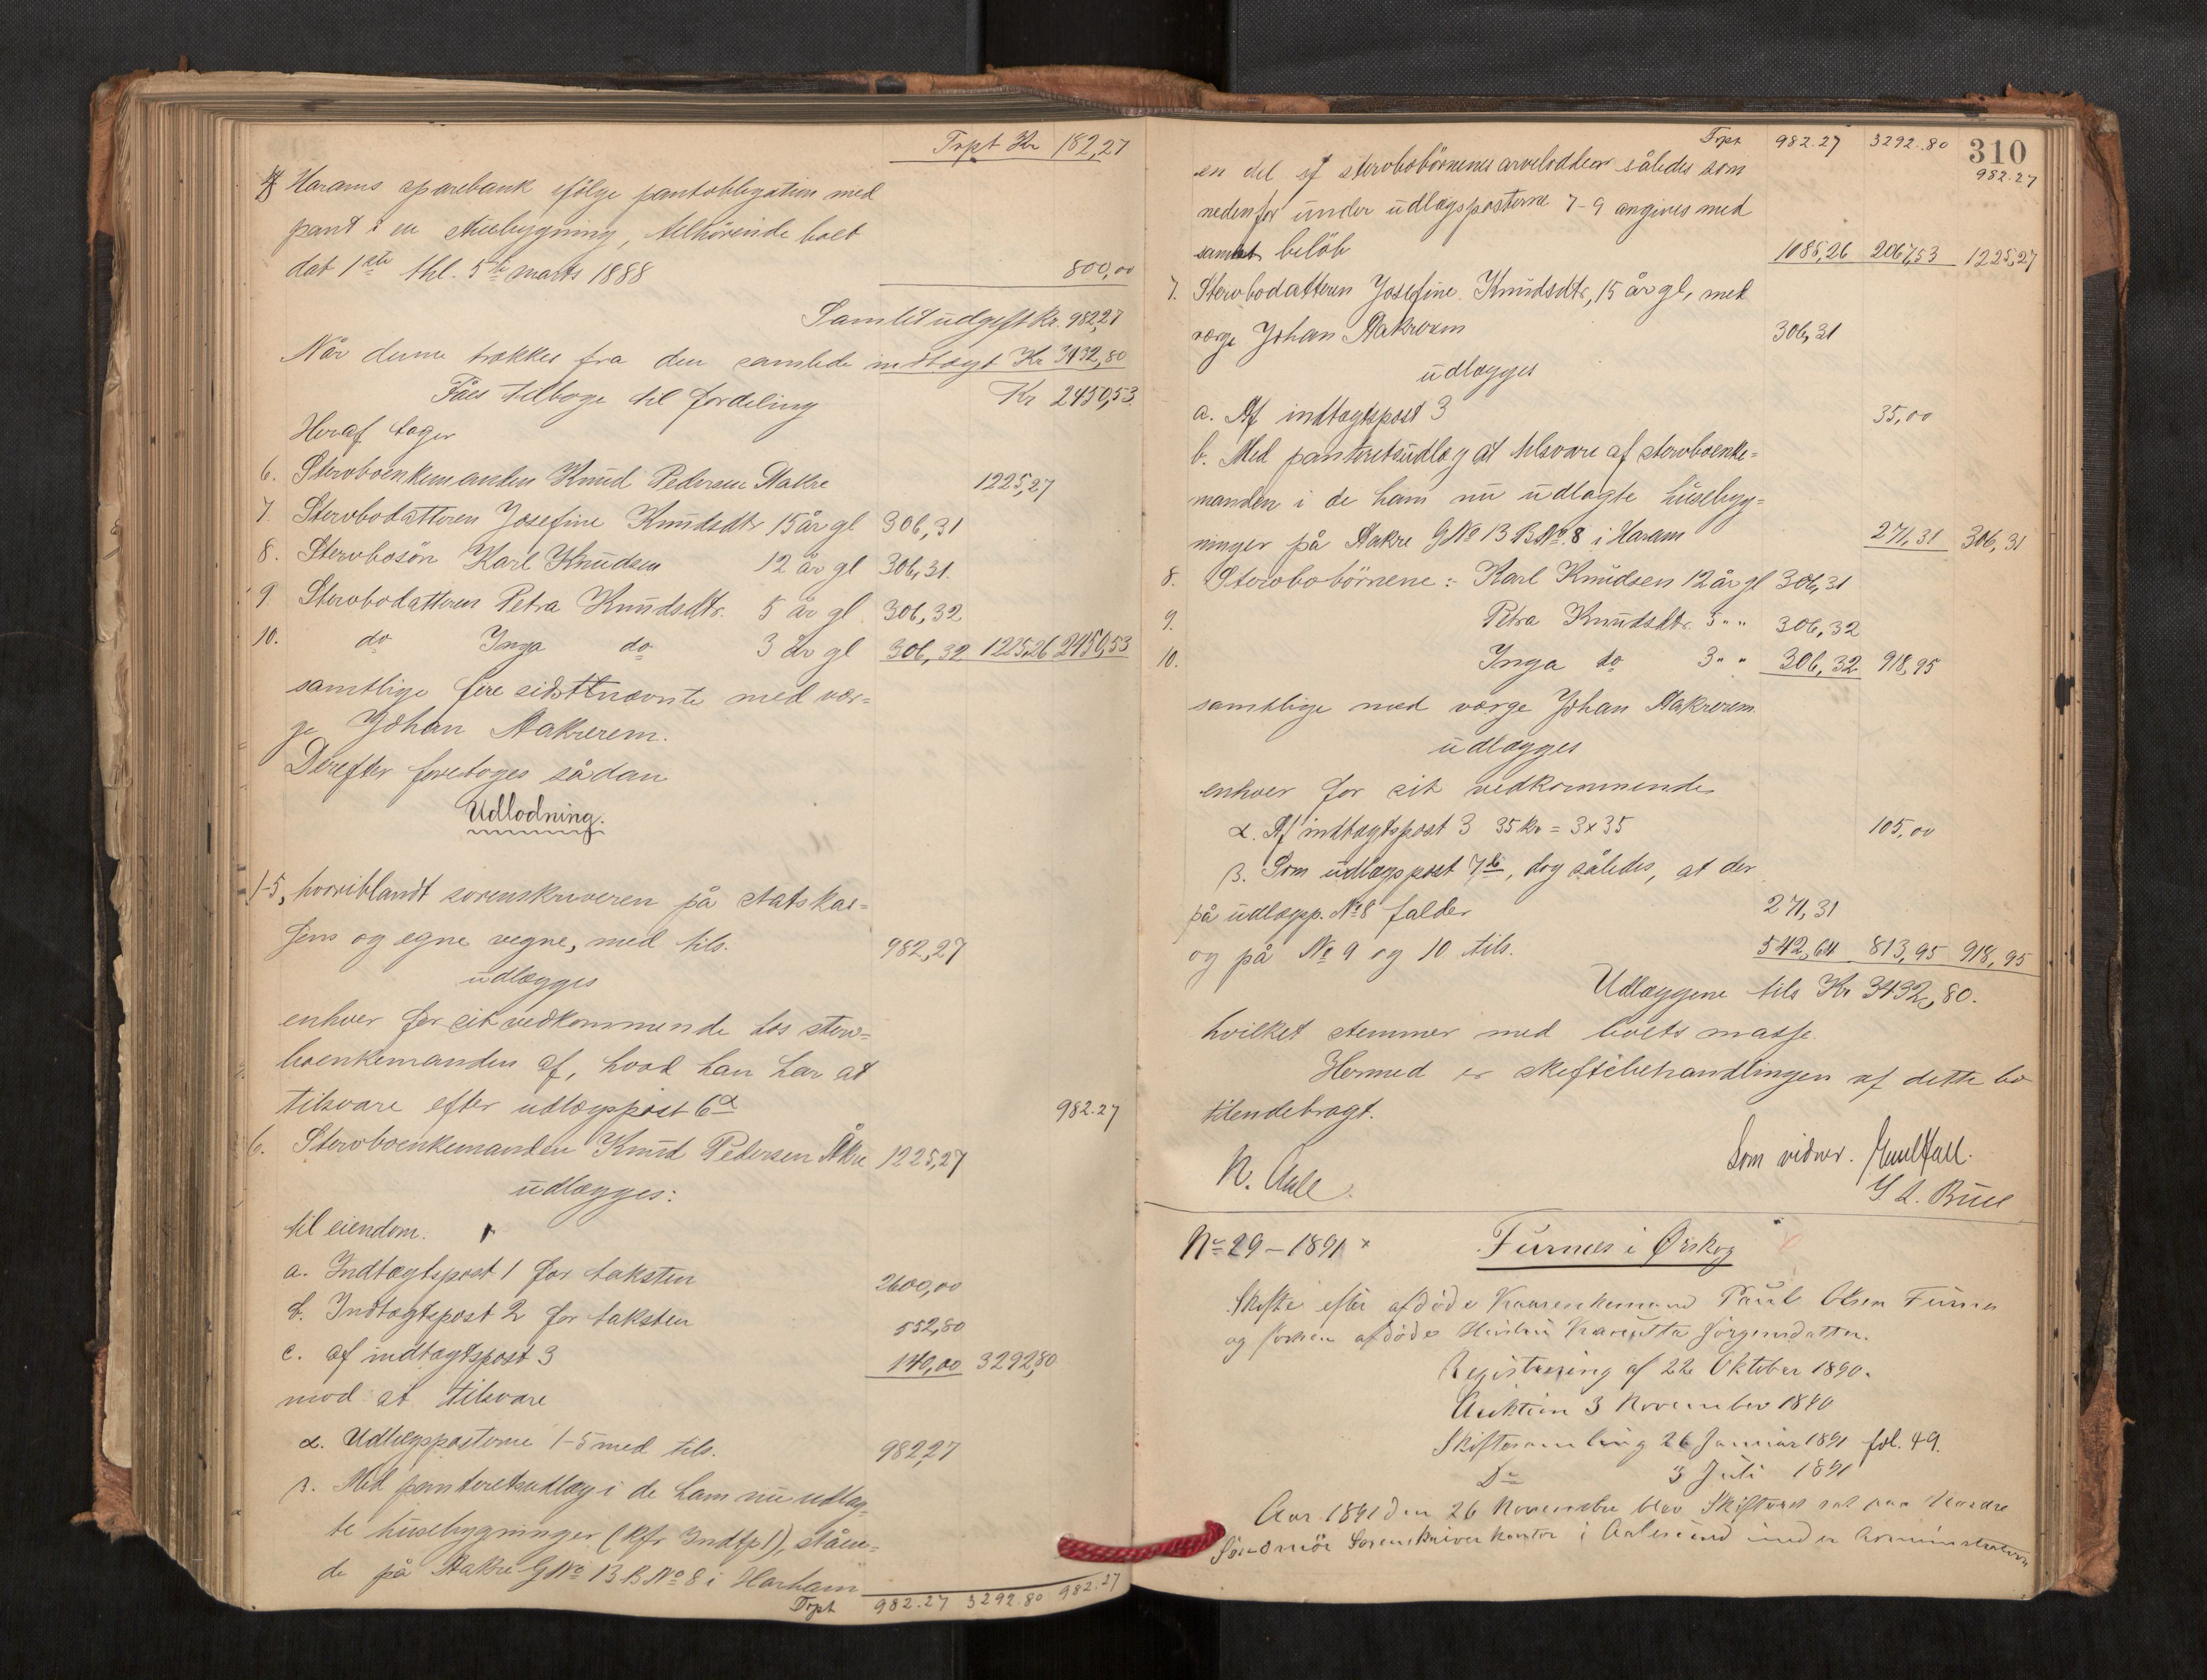 Trpt Kr 182,27
Harams sparebank ifölge pantobligation med
pant i en bygning, tilhörende boet
dat 1ste thl. 5te marts 1888 800,00
Samlet udgift Kr. 982,27
Når denne trækkes fra den samlede indtægt Kr 3432,80
Fåes tilbage til fordeling Kr 2450,53
Heraf tager
6. Stervboenkemanden Knud Pedersen Aakre 1225,27
7. Stervbodatteren Josefine Knudsdtr 15 år gl 306,31
8. Stervbosön Karl Knudsen 12 år gl 306,31
9. Stervbodatteren Petra Knudsdtr. 5 år gl 306,32
10. do Inga do 3 år gl 306,32 1225,26 2450,53
samtlige fire sidstnævnte med vær-
ge Johan Aakrerem.
Derefter foretoges sådan
Udlodning.
1-5, hvoriblandt sorenskriveren på statskas-
sens og egne vegne, med tils. 982,27
udlægges
enhver for sit vedkommende hos sterv-
boenkemanden af, hvad han har at
tilsvare efter udlægspost 6α 982.27
6. Stervboenkemanden Knud Pedersen Åkre 1225,27
udlægges:
til eiendom.
a. Indtægtspost 1 for taksten 2600,00
b. Indtægtspost 2 for taksten 552,80
c. af indtægtspost 3 140,00 3292,80
mod at tilsvare
α. Udlægsposterne 1-5 med tils. 982,27
β. Med panteretsudlæg i de ham nu udlag-
te husebygninger (kfr Indtp 1), ståen-
de på Aakre GNo 13 BNo 8 i Harham
Trpt 982.27 3292.80 982.27
Trpt 982.27 3292.80 982.27
310
en del af stervbobörnenes arvelodder således som
nedenfor under udlægsposterne 7-9 angives med
samlet belöb 1085,26 2067,53 1225,27
7. Stervbodatteren Josefine Knudsdtr, 15 år gl, med
værge Johan Aakrerem 306,31
udlægges
a. Af indtægtspost 3 35,00
b. Med panteretsudlæg at tilsvare af stervboenke-
manden i de ham nu udlagte husebyg-
ninger på Aakre GNo 13 BNo. 8 i Haram 271,31 306,31
8. Stervbobörnene: Karl Knudsen 12 år gl 306,31
9. Petra Knudsdtr. 5 " " 306,32
10. Inga do 3 " " 306,32 918,95
samtlige med værge Johan Aakrerem
udlægges
enhver for sit vedkommende
α. Af indtægtspost 3 35 kr = 3x35 105,00
β. Som udlægspost 7b, dog således, at der
på udlægsp. No 8 falder 271,31
og på No 9 og 10 tils. 542,64 813,95 918,95
Udlæggene tils Kr 3432,80.
hvilket stemmer med boets masse.
Hermed er skiftebehandlingen af dette bo
tilendebragt.
N. Aall. Som vidner.
No 29 - 1891 x Furnes i Ørskog
Skifte efter afdöde Kaarenkemand Paul Olsen Furnes
og forhen afdöde Hustru Jörgensdatter.
Registrering af 22 Oktober 1890.
Auktion 3 November 1890
Skiftesamling 26 Januar 1891 fol. 49.
Do 3 Juli 1891
Aar 1891 den 26 November blev Skifteret sat paa Nordre
Söndmör Sorenskriverkontor i Aalesund under Administration